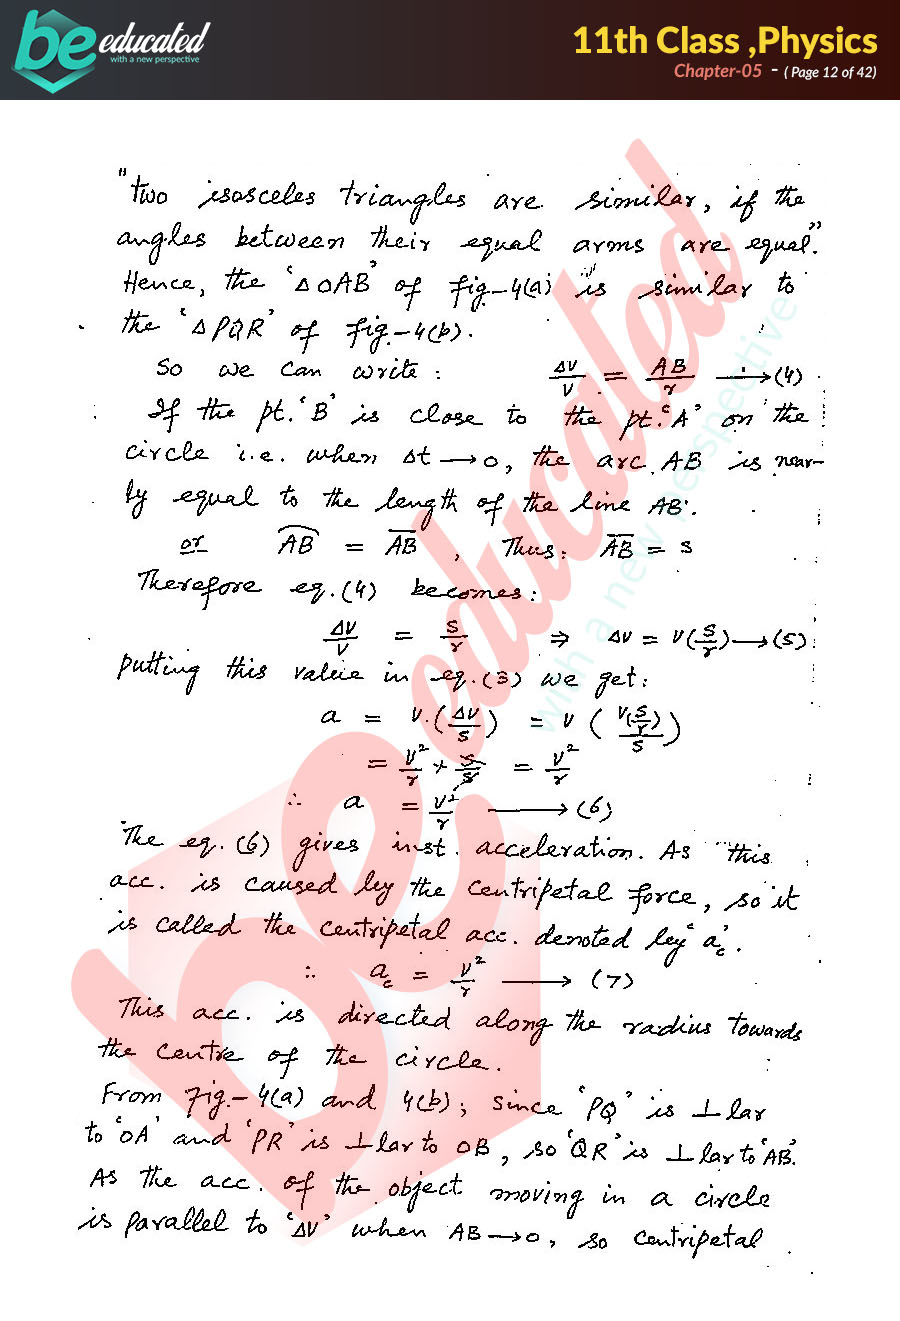 be educated
with a new perspective
11th Class ,Physics
Chapter-05 - ( Page 12 of 42)
"Two isosceles triangles are similar, if the
angles between their equal arms are equal."
Hence, the '△OAB' of fig-4(a) is similar to
the '△PQR' of fig.-4(b).
So we can write : Δv/v = AB/r ⟶(4)
If the pt. 'B' is close to the pt. 'A' on the
circle i.e. when Δt ⟶ 0, the arc AB is near-
ly equal to the length of the line AB.
or ⌒AB = A̅B̅ , Thus: A̅B̅ = S
Therefore eq.(4) becomes:
Δv/v = S/r ⇒ Δv = v(S/r)⟶(5)
Putting this value in eq.(3) we get:
a = v.(Δv/S) = v (v(S/r)/S)
= v²/r × S/S = v²/r
∴ a = v²/r ⟶(6)
The eq. (6) gives inst. acceleration. As this
acc. is caused by the centripetal force, so it
is called the centripetal acc. denoted by 'a_c'.
∴ a_c = v²/r ⟶ (7)
This acc. is directed along the radius towards
the centre of the circle.
From Fig.-4(a) and 4(b); since 'PQ' is ⊥lar
to 'OA' and 'PR' is ⊥lar to OB, so 'QR' is ⊥lar to 'AB'.
As the acc. of the object moving in a circle
is parallel to 'ΔV' when AB⟶0, so centripetal
be educated
with a new perspective